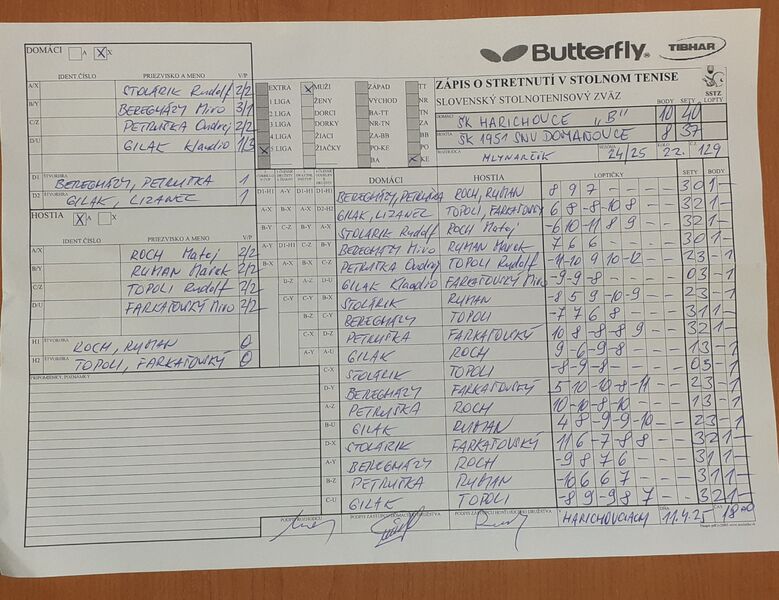 DOMÁCI A X
IDENT.ČÍSLO PRIEZVISKO A MENO V/P
A/X STOLÁRIK Rudolf 2/2
B/Y BEREGHÁZY Miro 3/1
C/Z PETRUŠKA Ondrej 2/2
D/U GILAK Klaudio 1/3
D1 ŠTVORHRA BEREGHÁZY, PETRUŠKA 1
D2 GILAK, LIZANEC 1
HOSTIA A X
IDENT.ČÍSLO PRIEZVISKO A MENO V/P
A/X ROCH Matej 2/2
B/Y RUMAN Marek 2/2
C/Z TOPOLI Rudolf 2/2
D/U FARKAŤOVSKÝ Miro 2/2
H1 ŠTVORHRA ROCH, RUMAN 0
H2 TOPOLI, FARKAŤOVSKÝ 0
PRIPOMIENKY, POZNÁMKY
Butterfly TIBHAR
ZÁPIS O STRETNUTÍ V STOLNOM TENISE
SLOVENSKÝ STOLNOTENISOVÝ ZVÄZ
SSTZ
BODY SETY LOPTY
DOMÁCI ŠK HARICHOVCE „B" 10 40
HOSTIA ŠK 1951 SNV DOMAŇOVCE 8 37
ROZHODCA MLYNARČIK SEZÓNA 24/25 KOLO 22. Č.Z. 129
EXTRA X MUŽI ZÁPAD TT
1 LIGA ŽENY VÝCHOD NR
2 LIGA DORCI BA-TT TN
3 LIGA DORKY NR-TN ZA
4 LIGA ŽIACI ZA-BB BB
X 5 LIGA ŽIAČKY PO-KE PO
BA X KE
DOMÁCI HOSTIA LOPTIČKY SETY BODY
BEREGHÁZY, PETRUŠKA ROCH, RUMAN 8 9 7 - - - - 3 0 1 -
GILAK, LIZANEC TOPOLI, FARKAŤOVSKÝ 6 8 -8 -10 8 3 2 1 -
STOLÁRIK Rudolf ROCH Matej -6 10 -11 8 9 3 2 1 -
BEREGHÁZY Miro RUMAN Marek 7 6 6 - - - - 3 0 1 -
PETRUŠKA Ondrej TOPOLI Rudolf -11 -10 9 10 -12 - - 2 3 - 1
GILAK Klaudio FARKAŤOVSKÝ Miro -9 -9 -8 - - - 0 3 - 1
STOLÁRIK RUMAN -8 5 9 -10 -9 - - 2 3 - 1
BEREGHÁZY TOPOLI -7 7 6 8 - - - 3 1 1 -
PETRUŠKA FARKAŤOVSKÝ 10 8 -8 -8 9 3 2 1 -
GILAK ROCH 9 -6 -9 -8 - - - 1 3 - 1
STOLÁRIK TOPOLI -8 -9 -8 - - - 0 3 - 1
BEREGHÁZY FARKAŤOVSKÝ 5 10 -10 -8 -11 - - 2 3 - 1
PETRUŠKA ROCH 10 -10 -8 -10 - - - 1 3 - 1
GILAK RUMAN 4 8 -9 -9 -10 - - 2 3 - 1
STOLÁRIK FARKAŤOVSKÝ 11 6 -7 -8 8 - - 3 2 1 -
BEREGHÁZY ROCH -9 8 7 6 - - - 3 1 1 -
PETRUŠKA RUMAN -10 6 6 7 - - - 3 1 1 -
GILAK TOPOLI -8 9 -9 8 7 - - 3 2 1 -
PODPIS ROZHODCU
PODPIS ZÁSTUPCU DOMÁCEHO DRUŽSTVA
PODPIS ZÁSTUPCU HOSŤUJÚCEHO DRUŽSTVA
V HARICHOVCIACH DŇA 11.4.25 ČAS 18 00